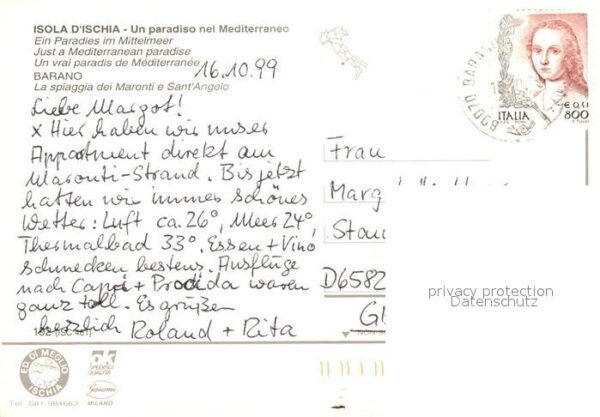 ISOLA D'ISCHIA - Un paradiso nel Mediterraneo
Ein Paradies im Mittelmeer
Just a Mediterranean paradise
Un vrai paradis de Méditerranée
BARANO
La spiaggia dei Maronti e Sant'Angelo
16.10.99
Liebe Margot!
x Hier haben wir unser
Appartment direkt am
Maronti-Strand. Bis jetzt
hatten wir immer schönes
Wetter: Luft ca. 26°, Meer 24°,
Thermalbad 33°. Essen + Vino
schmecken bestens. Ausflüge
nach Capri + Procida waren
ganz toll. Es grüßen
herzlich Roland + Rita
ITALIA
€ 0,41
800
80070
Frau
Marg
Stau
D6582
privacy protection
Datenschutz
ED. DI MEGLIO
ISCHIA
Tel. 081.984663
OK
SPEDISCI
QUALITÀ
Garami
MILANO